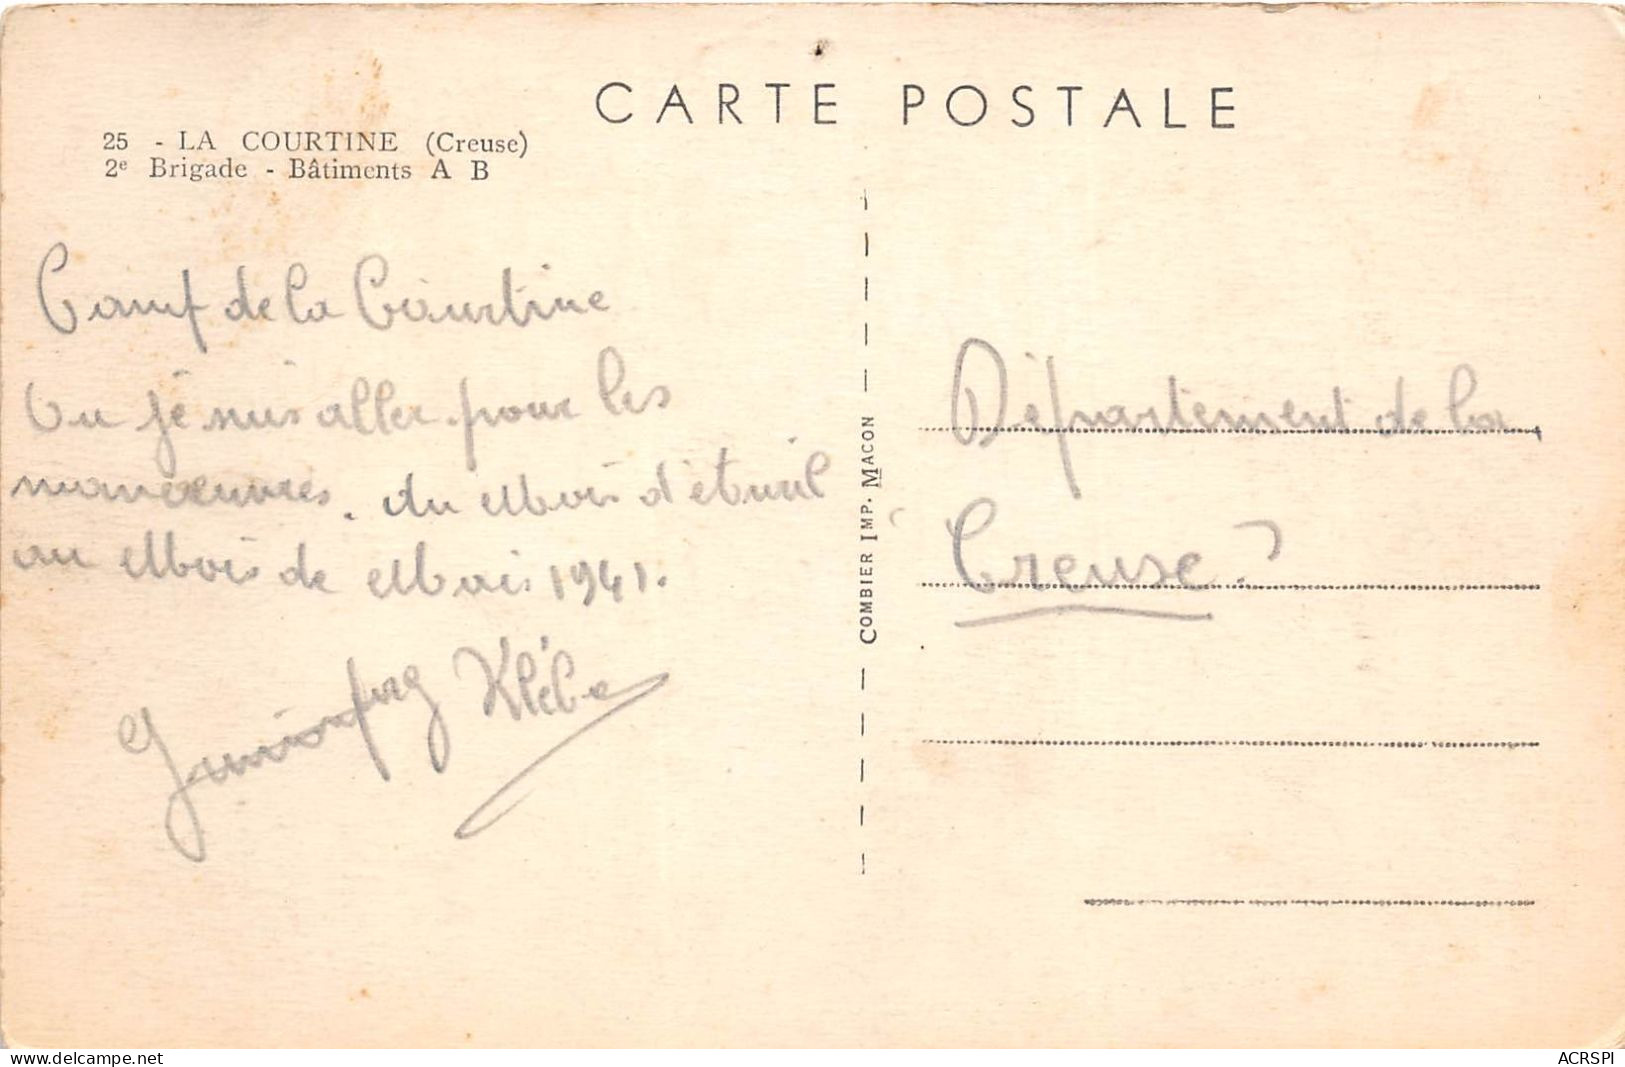 CARTE POSTALE
25 - LA COURTINE (Creuse)
2e Brigade - Bâtiments A B
Camp de la Courtine
Ou je suis aller pour les
manoeuvres. du Mois d'
au Mois de Mais 1941.
Kléber
COMBIER IMP. MACON
Département de la
Creuse
www.delcampe.net
ACRSPI